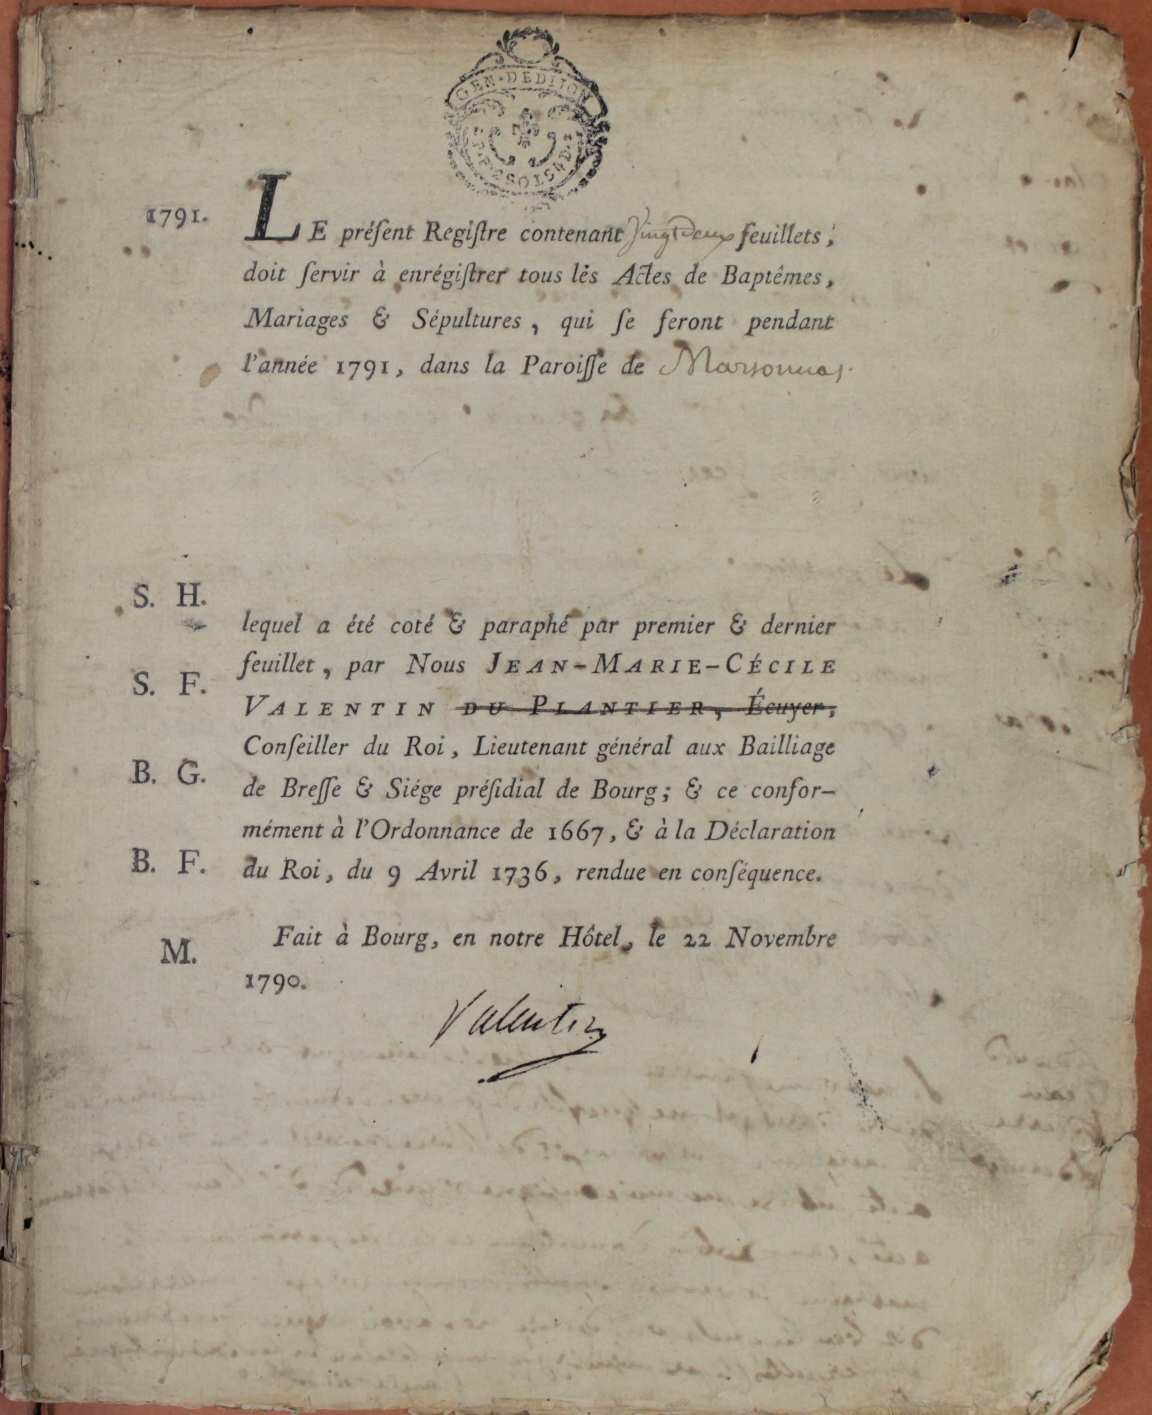 GEN. DE DIJON
1791.
LE préſent Regiſtre contenant Vingt Deux feuillets,
doit ſervir à enrégiſtrer tous lès Actes de Baptêmes,
Mariages & Sépultures, qui ſe feront pendant
l'année 1791, dans la Paroiſſe de Marsonnas.
S. H.
S. F.
B. G.
B. F.
M.
lequel a été coté & paraphé par premier & dernier
feuillet, par Nous JEAN-MARIE-CÉCILE
VALENTIN DU PLANTIER, Écuyer,
Conſeiller du Roi, Lieutenant général aux Bailliage
de Breſſe & Siége préſidial de Bourg; & ce confor-
mément à l'Ordonnance de 1667, & à la Déclaration
du Roi, du 9 Avril 1736, rendue en conſéquence.
Fait à Bourg, en notre Hôtel, le 22 Novembre
1790.
Valentin